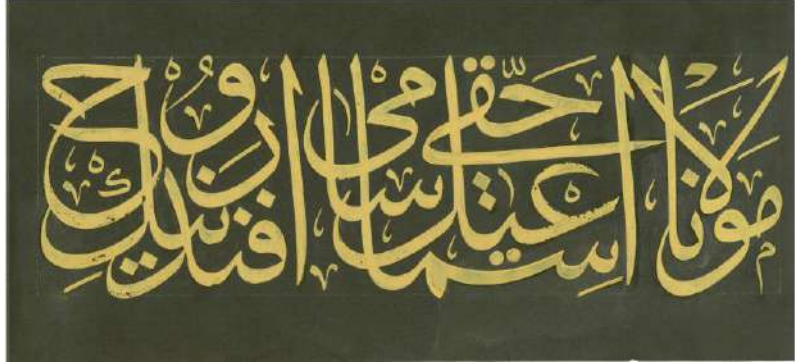 مولانا اسماعيل حقى سامى افندينك روح